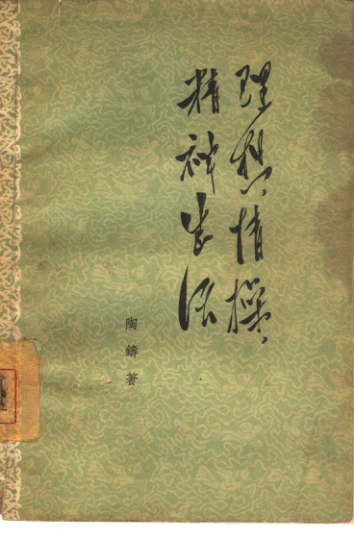 理想情操
精神生活
陶鑄著